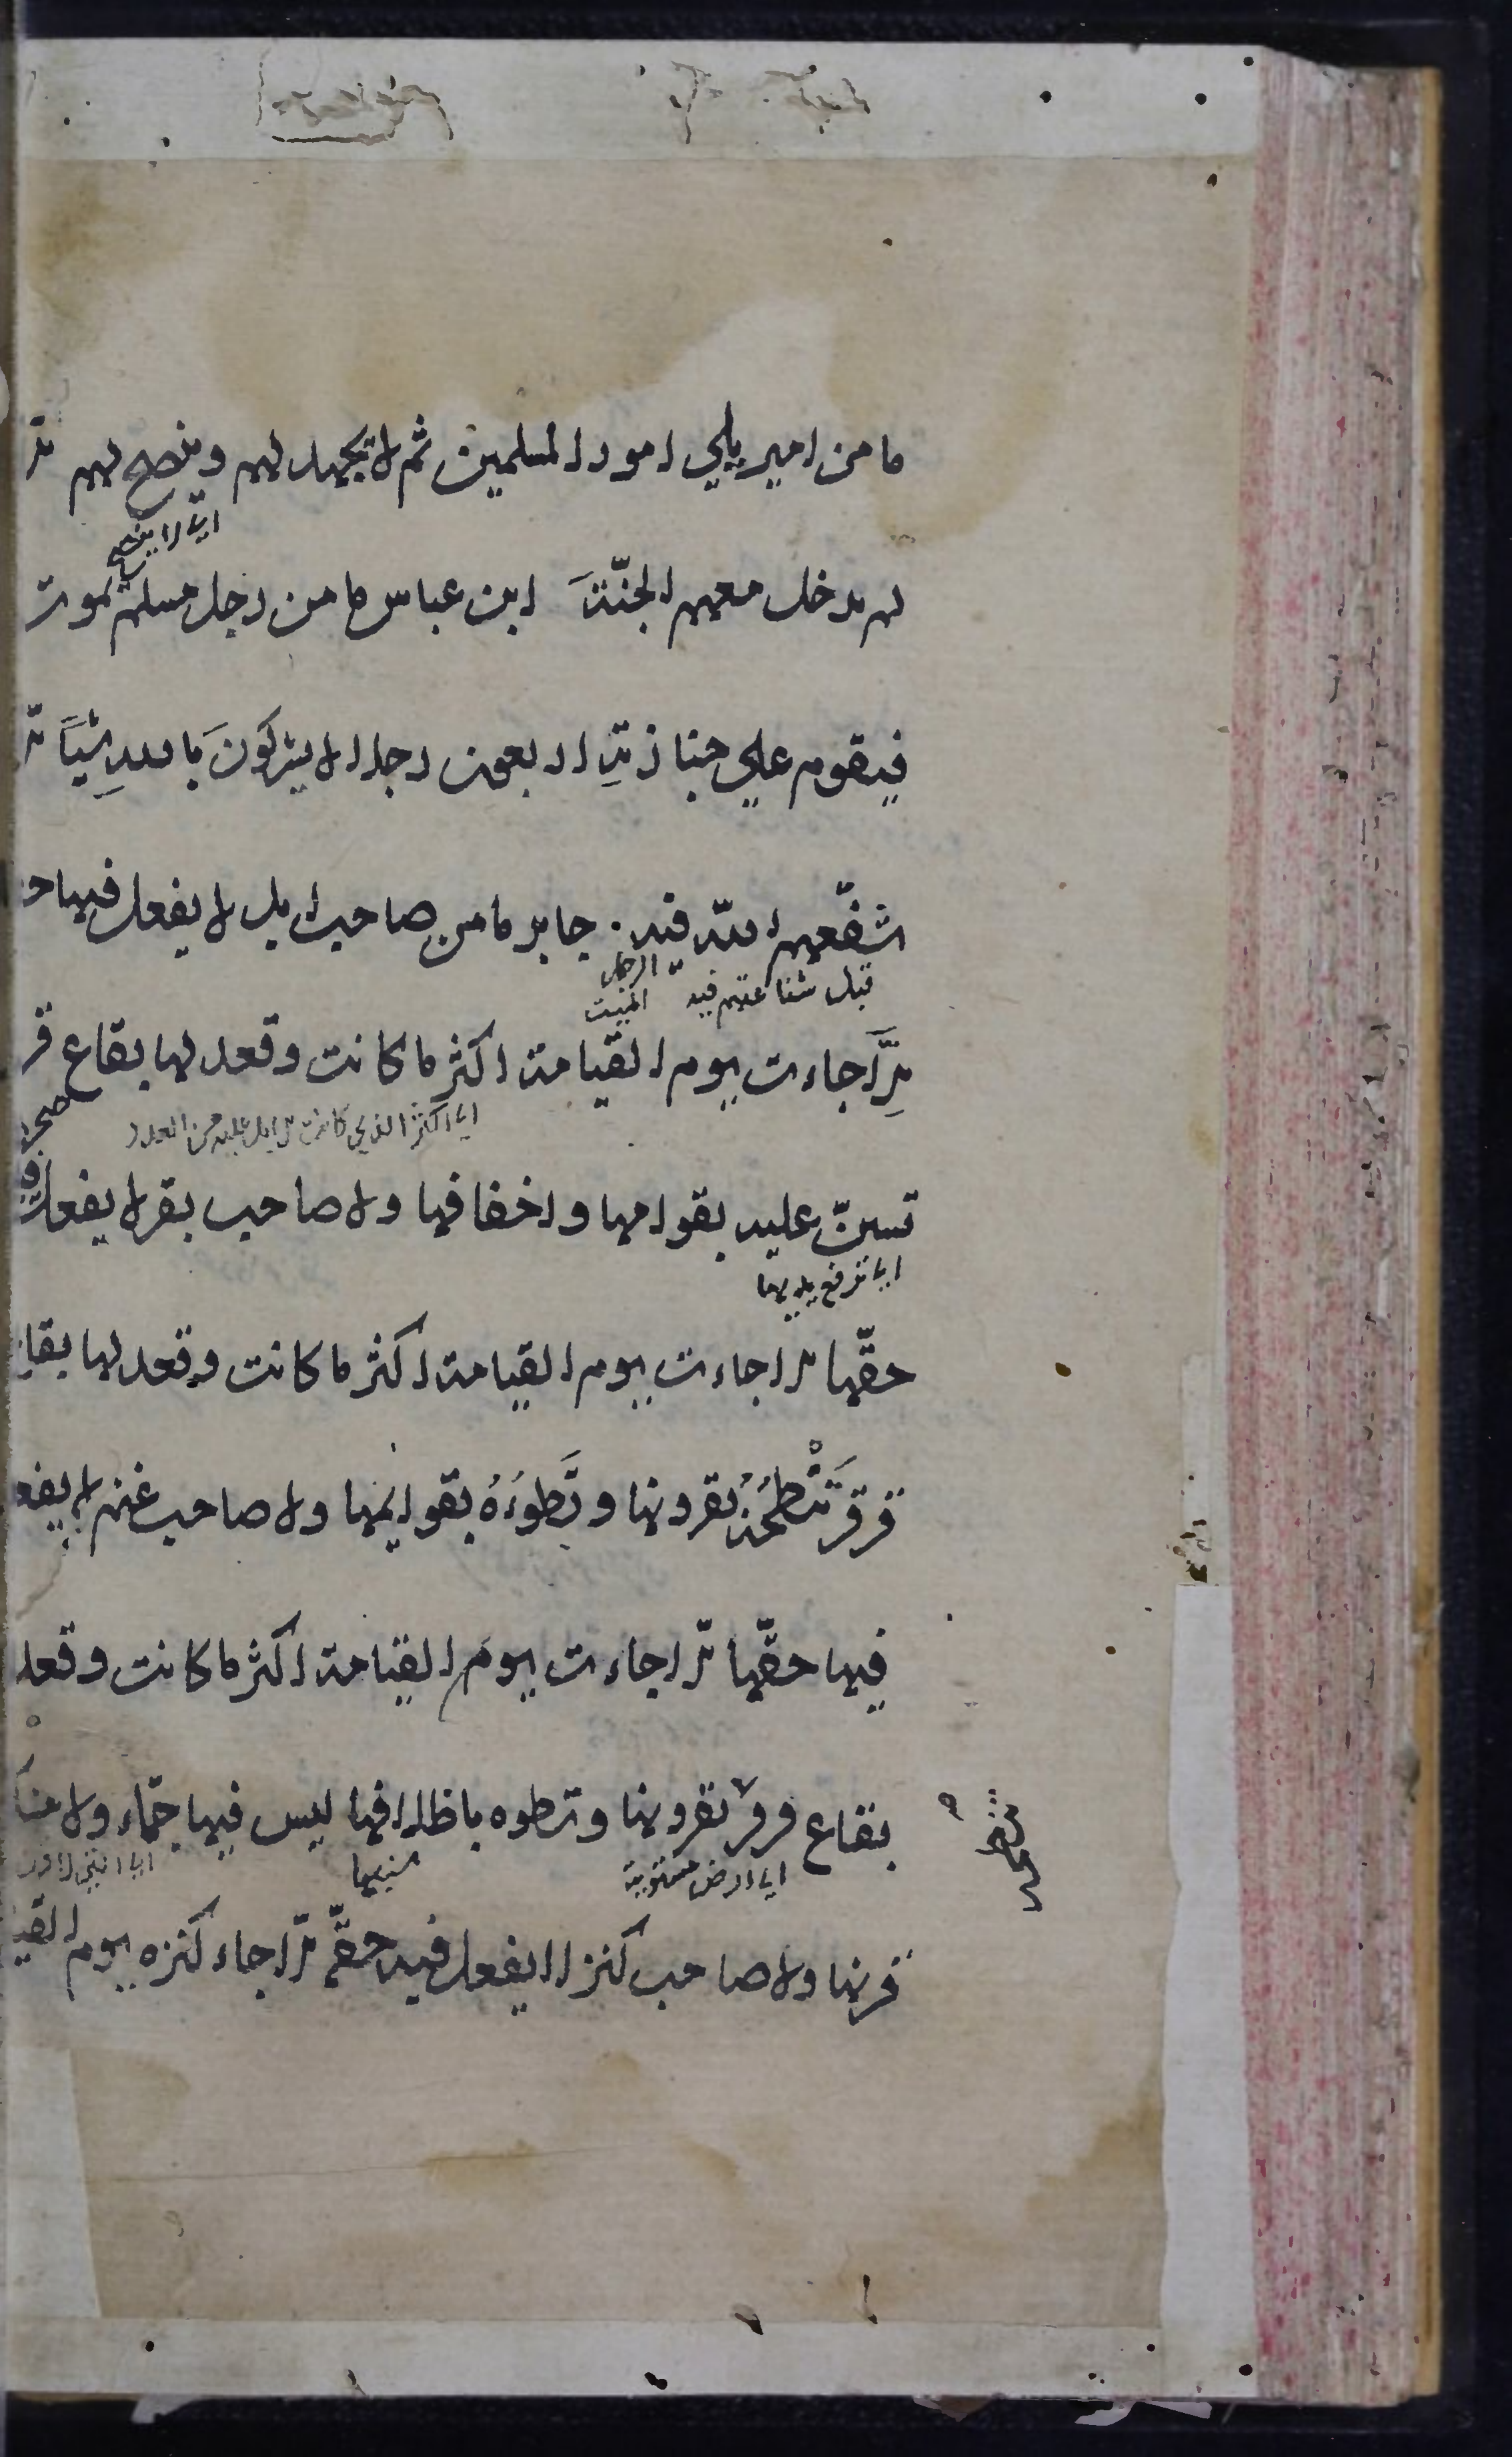 ما من امير يلي امور المسلمين ثم لا يجهد لهم وينصح لهم الا
اي لا ينصح
لم يدخل معهم الجنّة ابن عباس ما من رجل مسلم يموت
فيقوم علي جنازتِه اربعون رجلا لا يشركونَ باللهِ شيأً الا
شفّعهم اللّه فيه . جابر ما من صاحب ابل لا يفعل فيها
قبل شفاعتهم فيه
الميت
اِلَّا جاءت يوم القيامة اكثر ما كانت وقعد لها بقاع قر
اي اكثر الذي كانت
من العدد
تستنّ عليه بقوامها واخفافها ولا صاحب بقر لا يفعل
اي ترفع يديها
حقّها الا جاءت يوم القيامة اكثر ما كانت وقعد لها بقاع
قرقر تَنْطحُهُ بقرونها وتَطوءُهُ بقوايمها ولا صاحب غنم لا يفعل
فيها حقّها الّا جاءت يوم القيامة اكثر ما كانت وقعد
بقاع قرقر بقرونها وتطوه باظلافها ليس فيها جمّاء ولا
تنطحه
اي ارض مستوية
قرنها ولا صاحب كنز لا يفعل فيه حقّه الّا جاء كنزه يوم القيا